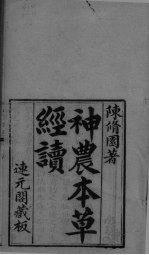 陳脩園著
神農本草
經讀
連元閣藏板